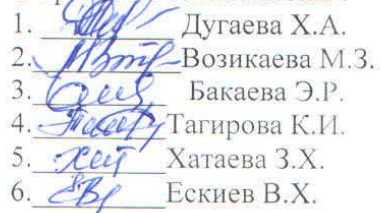 1. Дугаева Х.А.
2. Возикаева М.З.
3. Бакаева Э.Р.
4. Тагирова К.И.
5. Хатаева З.Х.
6. Ескиев В.Х.